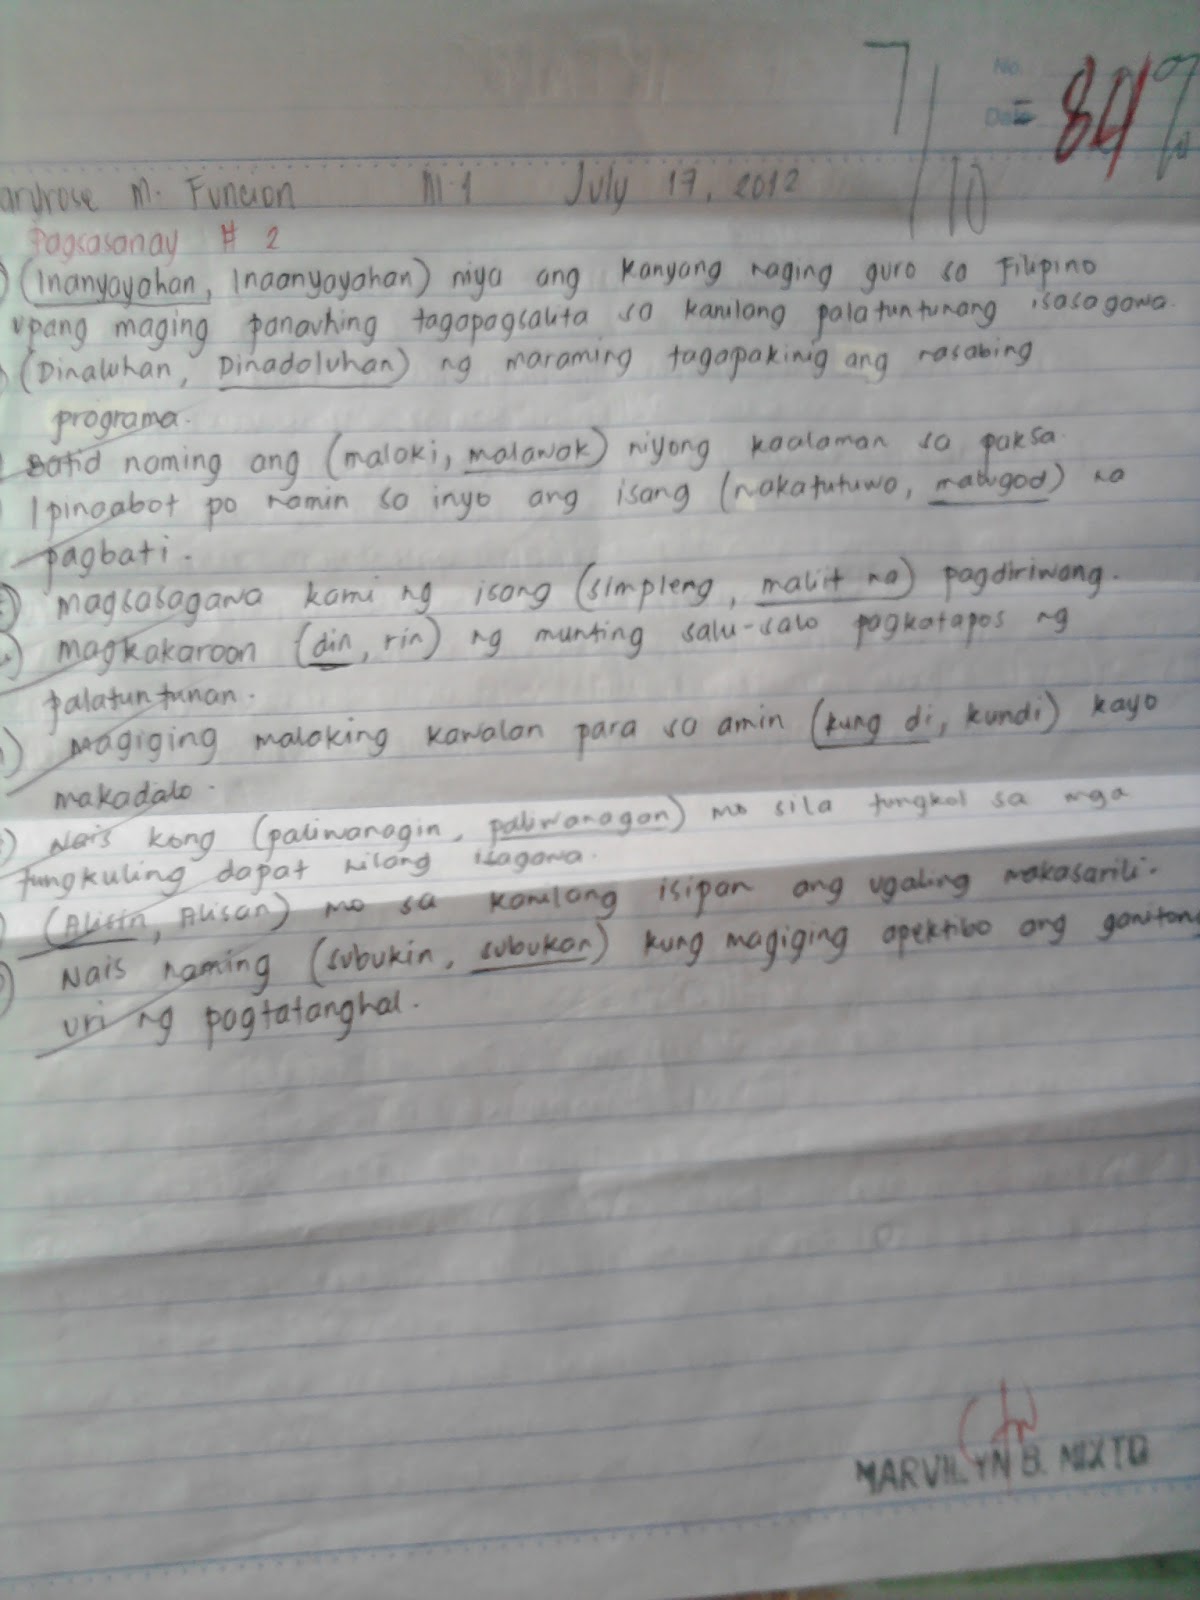 7/10 = 84%
No.
Date
aryrose M. Funcion III-1 July 17, 2012
Pagsasanay # 2
(Inanyayahan, Inaanyayahan) niya ang kanyang naging guro sa Filipino
upang maging panauhing tagapagsalita sa kanilang palatuntunang isasagawa.
(Dinaluhan, Dinadaluhan) ng maraming tagapakinig ang nasabing
programa.
Batid naming ang (malaki, malawak) niyong kaalaman sa paksa.
Ipinaabot po namin sa inyo ang isang (nakatutuwa, malugod) na
pagbati.
magsasagawa kami ng isang (simpleng, maliit na) pagdiriwang.
magkakaroon (din, rin) ng munting salu-salo pagkatapos ng
palatuntunan.
Magiging malaking kawalan para sa amin (kung di, kundi) kayo
makadalo.
Nais kong (paliwanagin, paliwanagan) mo sila tungkol sa mga
tungkuling dapat nilang isagawa.
(Alisin, Alisan) mo sa kanilang isipan ang ugaling makasarili.
Nais naming (subukin, subukan) kung magiging apektibo ang ganitong
uri ng pagtatanghal.
MARVILYN B. NIXTO